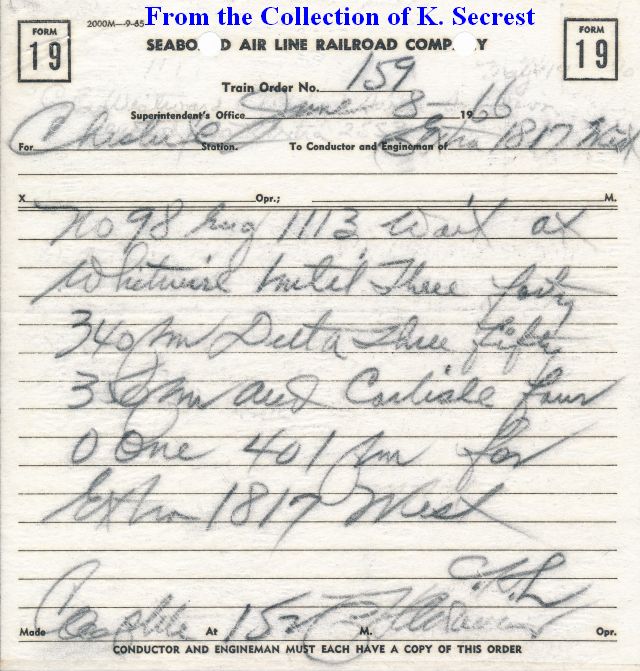 From the Collection of K. Secrest
FORM 19
2000M—9-65
FORM 19
SEABO D AIR LINE RAILROAD COMP Y
Train Order No. 159
Superintendent's Office June 8 - 1966
For Chester SC Station. To Conductor and Engineman of Extra 1817 West
X Opr.; M.
No 98 Eng 1113 Wait at
Whitmire until Three forty
340 pm Delta Three fifty
350 pm and Carlisle four
0 One 401 pm for
Extra 1817 West
Made Complete At 152 P M. Opr.
CONDUCTOR AND ENGINEMAN MUST EACH HAVE A COPY OF THIS ORDER